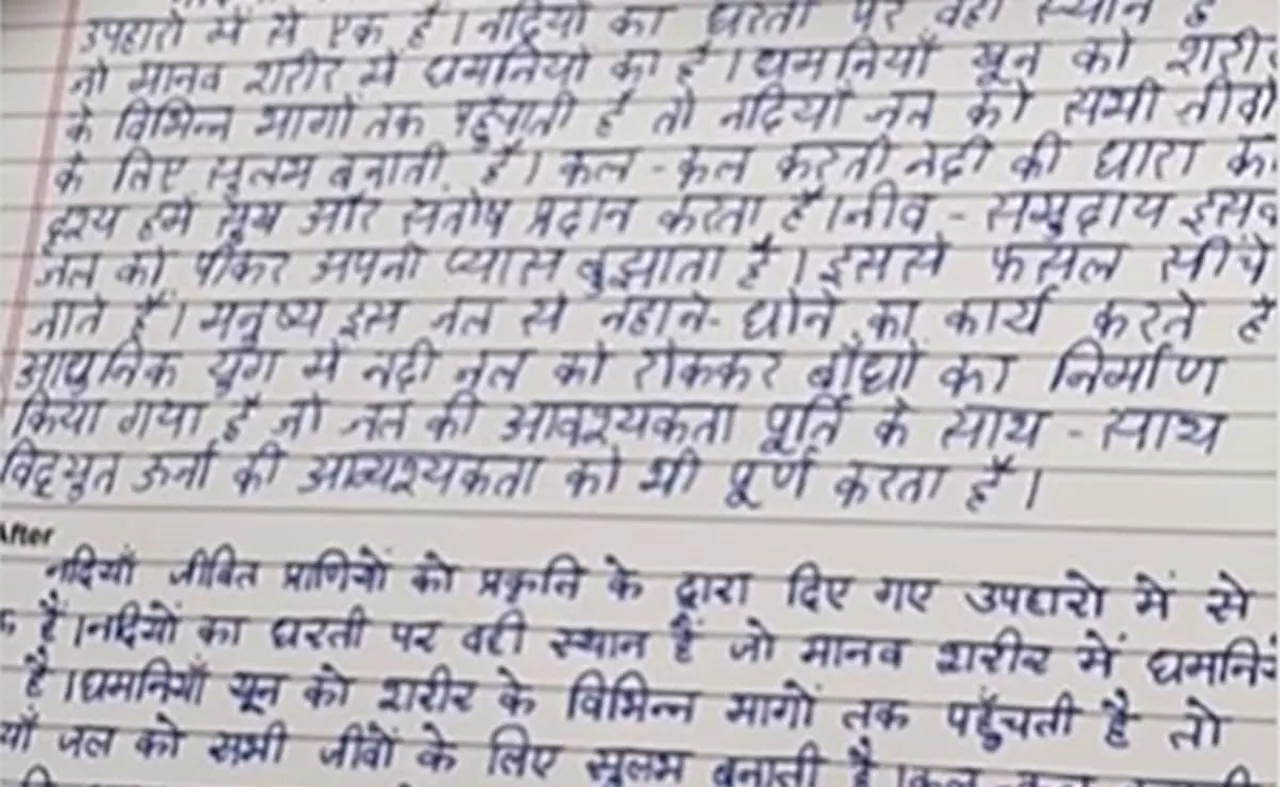 उपहारो में से एक है । नदियों का धरती पर वही स्थान है
जो मानव शरीर में धमनियों का है । धमनियाँ खून को शरीर
के विभिन्न भागों तक पहुँचाती है तो नदियाँ जल को सभी जीवो
के लिए सुलभ बनाती है । कल - कल करती नदी की धारा का
दृश्य हमें सुख और संतोष प्रदान करता है । जीव - समुदाय इसके
जल को पीकर अपनी प्यास बुझाता है । इससे फसल सींचे
जाते है । मनुष्य इस जल से नहाने - धोने का कार्य करते है
आधुनिक युग में नदी जल को रोककर बाँधो का निर्माण
किया गया है जो जल की आवश्यकता पूर्ति के साथ - साथ
विद्युत ऊर्जा की आवश्यकता को भी पूर्ण करता है ।
After
नदियाँ जीवित प्राणियों को प्रकृति के द्वारा दिए गए उपहारो में से
है । नदियों का धरती पर वही स्थान हैं जो मानव शरीर में
है । धमनियाँ खून को शरीर के विभिन्न भागों तक पहुँचती है तो
जल को सभी जीवों के लिए सुलभ बनाती है ।